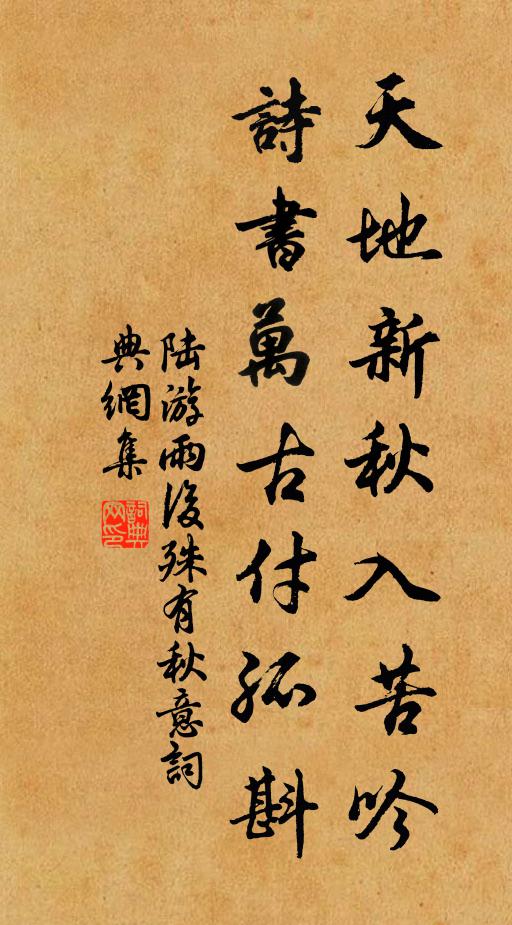 天地新秋入苦吟
詩書萬古付孤斟
陸游雨後殊有秋意詞
典網集
詞典
网印